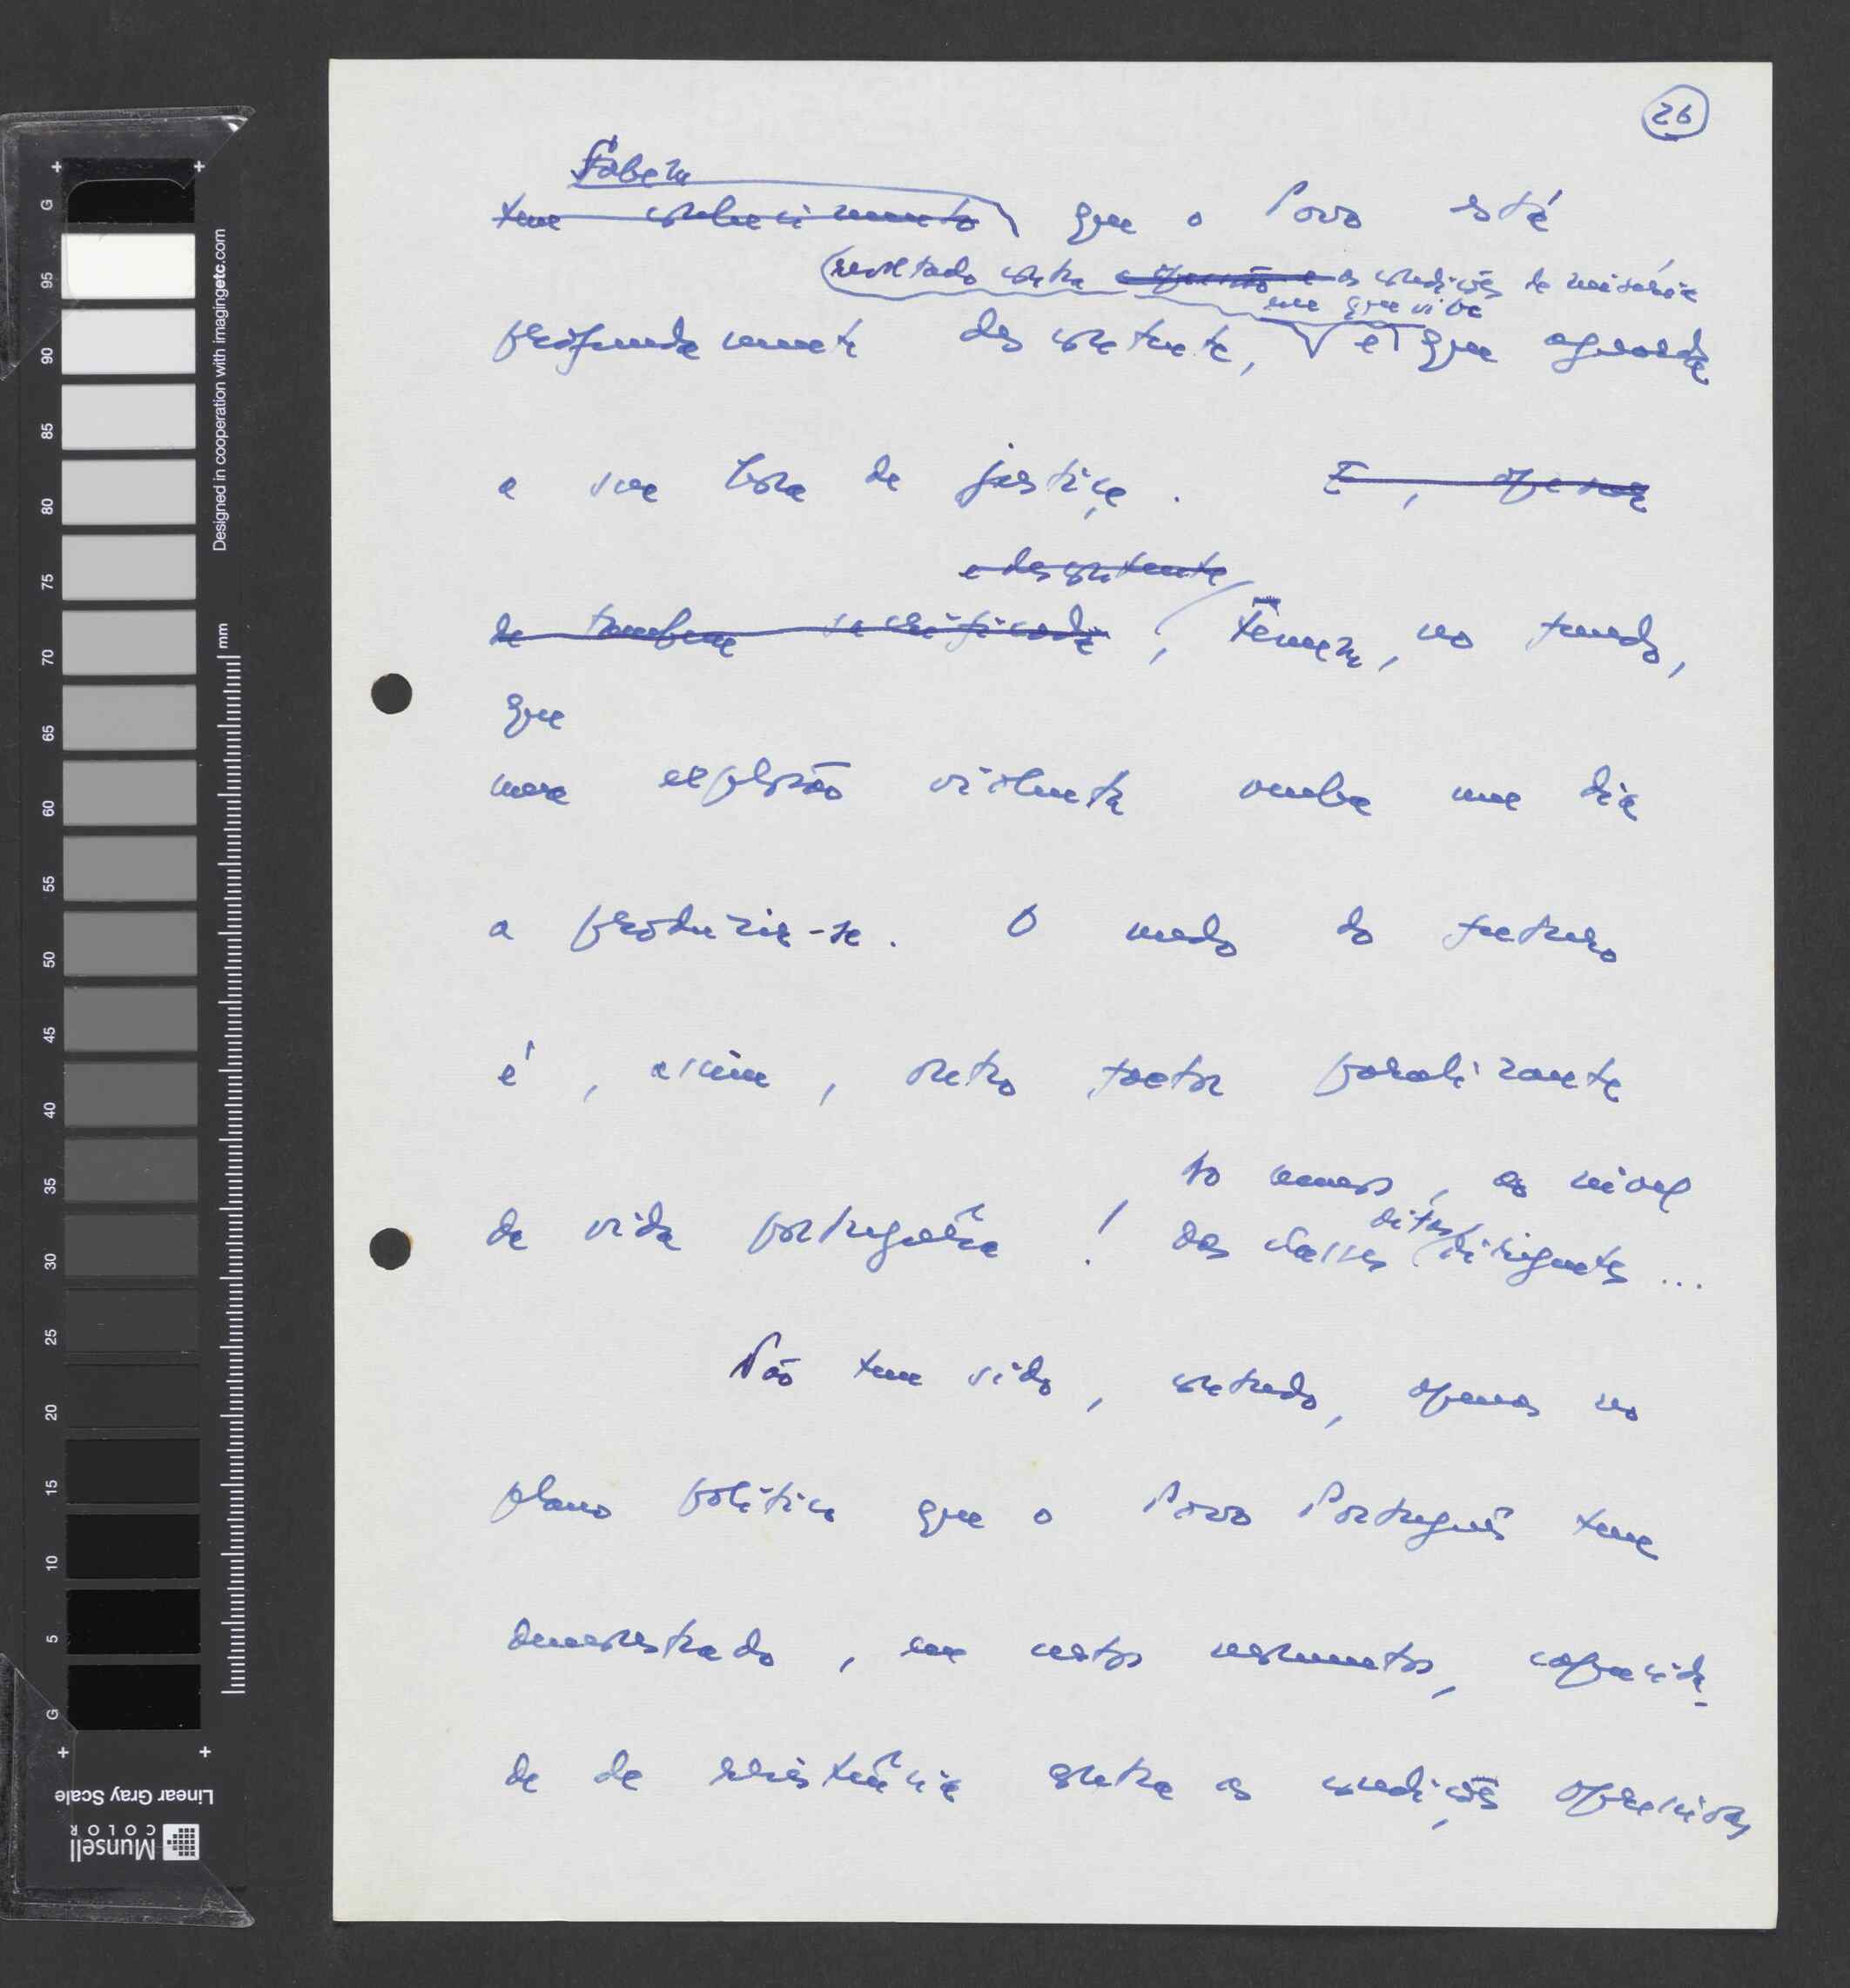 26
Sabem
tem conhecimento que o Povo está
revoltado contra a opressão e as condições de miséria
em que vive
profundamente descontente, e que aguarda
a sua hora de justiça. E, apesar
e descontente
de também sacrificada, Temem, no fundo,
que
uma explosão violenta venha um dia
a produzir-se. O medo do futuro
é, assim, outro factor paralizante
to menos, ao nível
da vida portuguêsa! das classes ditas dirigentes...
Não tem sido, contudo, apenas no
plano político que o Povo Português tem
demonstrado, em certos momentos, capacida-
de de resistência contra as condições opressivas
G
95
90
85
80
75
70
65
60
55
50
45
40
35
30
25
20
15
10
5
G
mm
Designed in cooperation with imagingetc.com
Linear Gray Scale
Munsell
COLOR